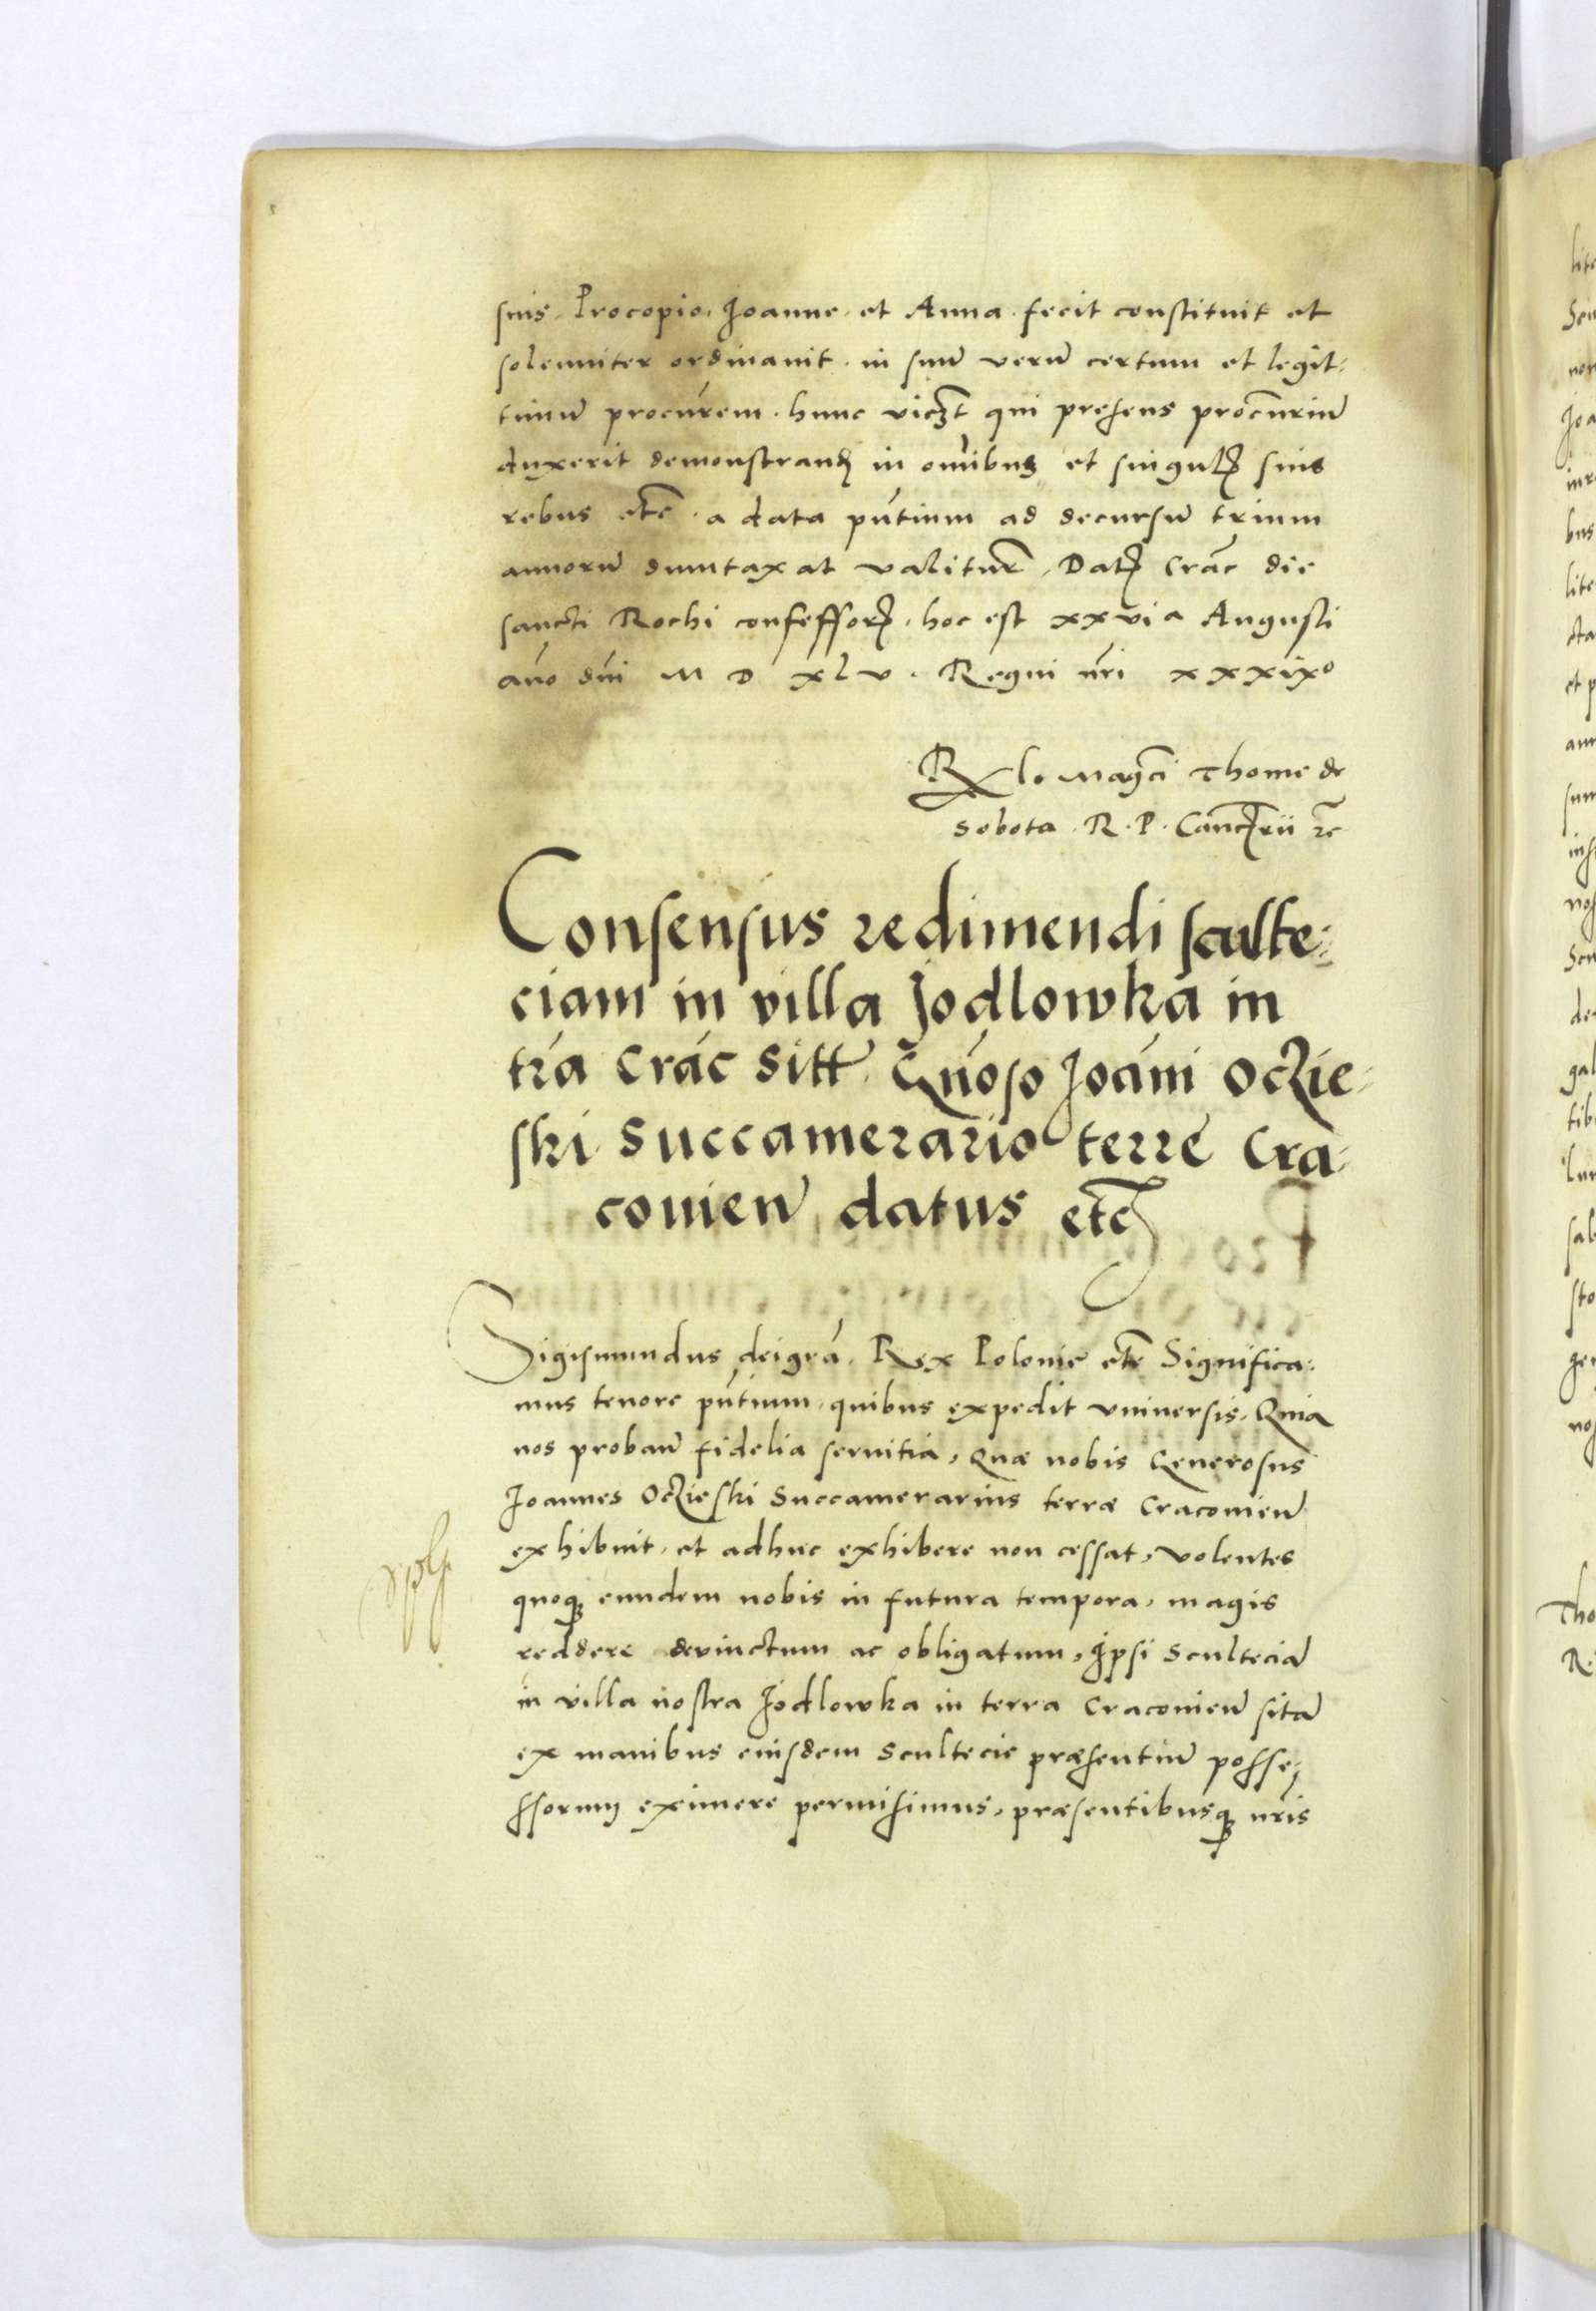 suis. Procopio, Joanne, et Anna. fecit constituit et
solenniter ordinavit. in suũ verũ certum et legit-
timũ procúrem. hunc viczt qui presens procũriũ
duxerit demonstrand in omibus et singul suis
rebus etc. a data pñtium ad decursũ trium
annorũ dumtaxat valitur. Dat Crac die
sancti Rochi confessor, hoc est xxvi a Augusti
año dñi M D XLV. Regni nri xxxixo
Rlo Magci Thome de
Sobota. R. P. Cancrii rc
Consensus redimendi sculte-
ciam in villa Jodlowka in
tra Crac sitt Gñoso Joáni Oczie-
ski Succamerario terre Cra-
covien̄ datus etc
Sigismundus dei gra. Rex Polonie etc Significa-
mus tenore pñtium, quibus expedit universis. Quia
nos proban̄ fidelia servitia, quæ nobis Generosus
Joannes Oczieski Succamerarius terræ Cracovien̄
exhibuit, et adhuc exhibere non cessat, volentes
quoq eundem nobis in futura tempora, magis
reddere devinctum ac obligatum, Ipsi Sculteciã
in villa nostra Jodlowka in terra Cracovien̄ sitã
ex manibus eiusdem Scultecie præsentiũ posse-
ssorum eximere permisimus, præsentibusq nris